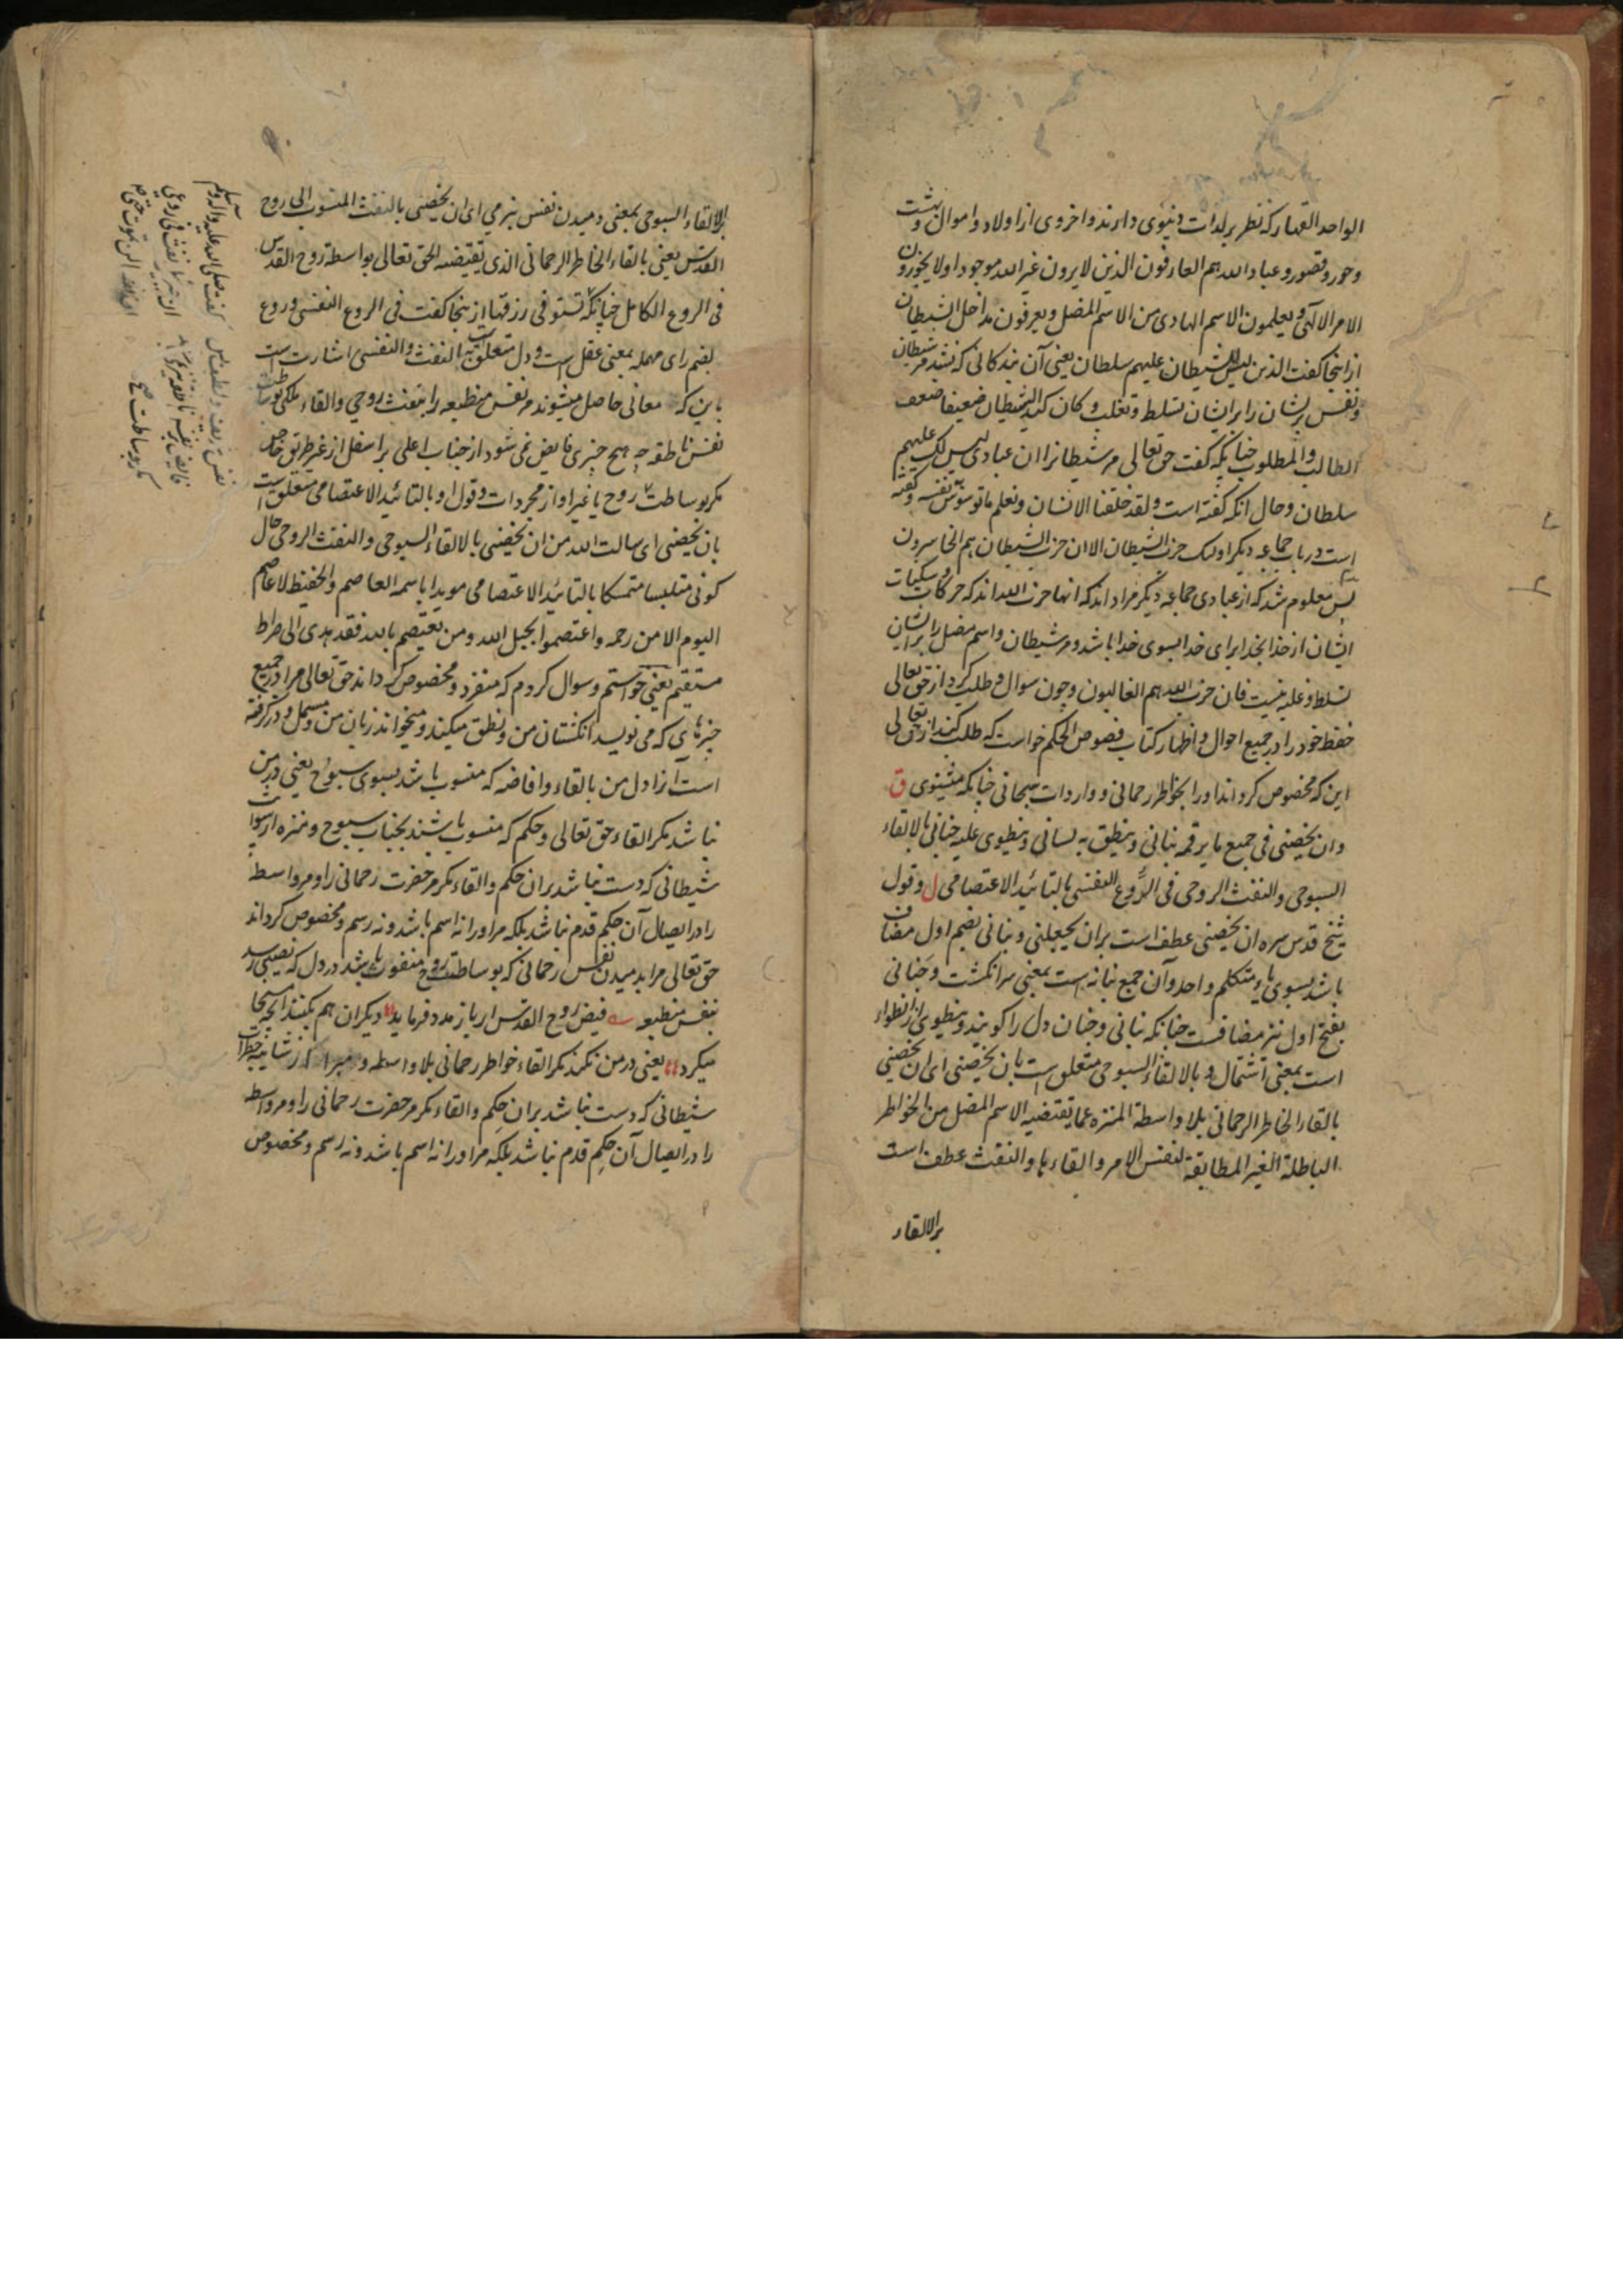 الواحد القهار که نظر بر لذات دنیوی دارند و اخروی از اولاد و اموال و بهشت
و حور و قصور و عباد الله هم العارفون الذین لا یرون غیر الله موجودا و لا یجوزون
الامر الالهی و یعلمون الاسم الهادی من الاسم المضل و یعرفون مداخل الشیطان
از اینجا گفت الذین لیس للشیطان علیهم سلطان یعنی آن بندگانی که نیند مر شیطان
و نفس بر ایشان را بر ایشان تسلط و تغلب و کان کید الشیطان ضعیفا ضعف
الطالب و المطلوب چنانکه گفت حق تعالی مر شیطانرا ان عبادی لیس لک علیهم
سلطان و حال آنکه گفته است و لقد خلقنا الانسان و نعلم ما توسوس به نفسه و گفته
است در باب جماعه دیگر اولئک حزب الشیطان الا ان حزب الشیطان هم الخاسرون
پس معلوم شد که از عبادی جماعه دیگر مراد اند که آنها حزب الله اند که حرکات و سکنات
ایشان از خدا بخدا برای خدا بسوی خدا باشد و مر شیطان و اسم مضل را بر ایشان
تسلط و غلبه نیست فان حزب الله هم الغالبون و چون سوال و طلب کرد از حق تعالی
حفظ خود را در جمیع احوال و اظهار کتاب فصوص الحکم خواست که طلب کند از حق تعالی
این که مخصوص گرداند او را بخواطر رحمانی و واردات سبحانی چنانکه مثنوی ق
و ان یخصنی فی جمیع ما یرقمه بنانی و ینطق به لسانی و ینطوی علیه جنانی بالالقاء
السبوحی و النفث الروحی فی الروع النفسی بالتائید الاعتصامی ل و قول
شیخ قدس سره ان یخصنی عطف است بر ان یجعلنی و بنانی بضم اول مضاف
باشد بسوی یاء متکلم واحد و آن جمع بنانه است بمعنی سر انگشت و جنانی
بفتح اول نیز مضافست چنانکه بنانی و جنان دل را گویند و ینطوی از انطواء
است بمعنی اشتمال و بالالقاء السبوحی متعلق است بان یخصنی ای ان یخصنی
بالقاء الخاطر الرحمانی بلا واسطة المنزه عما تقتضیه الاسم المضل من الخواطر
الباطلة الغیر المطابقة لنفس الامر و القاء ها و النفث عطف است
بر الالقاء
بر الالقاء السبوحی بمعنی دمیدن نفس بنرمی ای ان یخصنی بالنفث المنسوب الی روح
القدس یعنی بالقاء الخاطر الرحمانی الذی تقتضیه الحق تعالی بواسطه روح القدس
فی الروع الکامل چنانکه تستوفی رزقها از ینجا گفت فی الروع النفسی و روع
بضم رای مهمله بمعنی عقل است و دل متعلق به النفث و النفسی اشارت است
باین که معانی حاصل میشوند مر نفس منطبعه را بنفث روحی و القاء ملکی بوساطت
نفس ناطقه چه هیچ چیزی فایض نمی شود از جناب اعلی بر اسفل از غیر طریق خاص
مگر بوساطت روح یا غیر او از مجردات و قول او بالتائید الاعتصامی متعلق است
بان یخصنی ای سالت الله من ان یخصنی بالالقاء السبوحی و النفث الروحی حال
کونی متلبسا متمسکا بالتائید الاعتصامی مویدا باسمه العاصم و الحفیظ لا عاصم
الیوم الا من رحمه و اعتصموا بحبل الله و من یعتصم بالله فقد هدی الی صراط
مستقیم یعنی خواستم و سوال کردم که منفرد و مخصوص گرداند حق تعالی مرا در جمیع
چیزهای که می نویسد انگشتان من و نطق میکند و میخواند زبان من و مشمل و در گرفته
است آنرا دل من بالقاء و افاضه که منسوب باشد بسوی سبوح یعنی در من
نباشد مگر القاء حق تعالی و حکم که منسوب باشند بجناب سبوح و منزه از سواء
شیطانی که دست نباشد بر ان حکم و القاء مگر مر حضرت رحمانی را و مر واسطه
را در ایصال آن حکم قدم نباشد بلکه مر او را نه اسم باشد و نه رسم و مخصوص گرداند
حق تعالی مرا بدمیدن نفس رحمانی که بوساطت روح منفوث باشد در دل که نصیبی رسد
بنفس منطبعه فیض روح القدس ار باز مدد فرماید دیگران هم بکنند آنچه مسیحا
میکرد یعنی در من نکند مگر القاء خواطر رحمانی بلا واسطه و مبرا از شایبه خطرات
شیطانی که دست نباشد بر ان حکم و القاء مگر مر حضرت رحمانی را و مر واسطه
را در ایصال آن حکم قدم نباشد بلکه مر او را نه اسم باشد و نه رسم و مخصوص
گفت صلی الله علیه و آله وسلم
نفث فی روعی